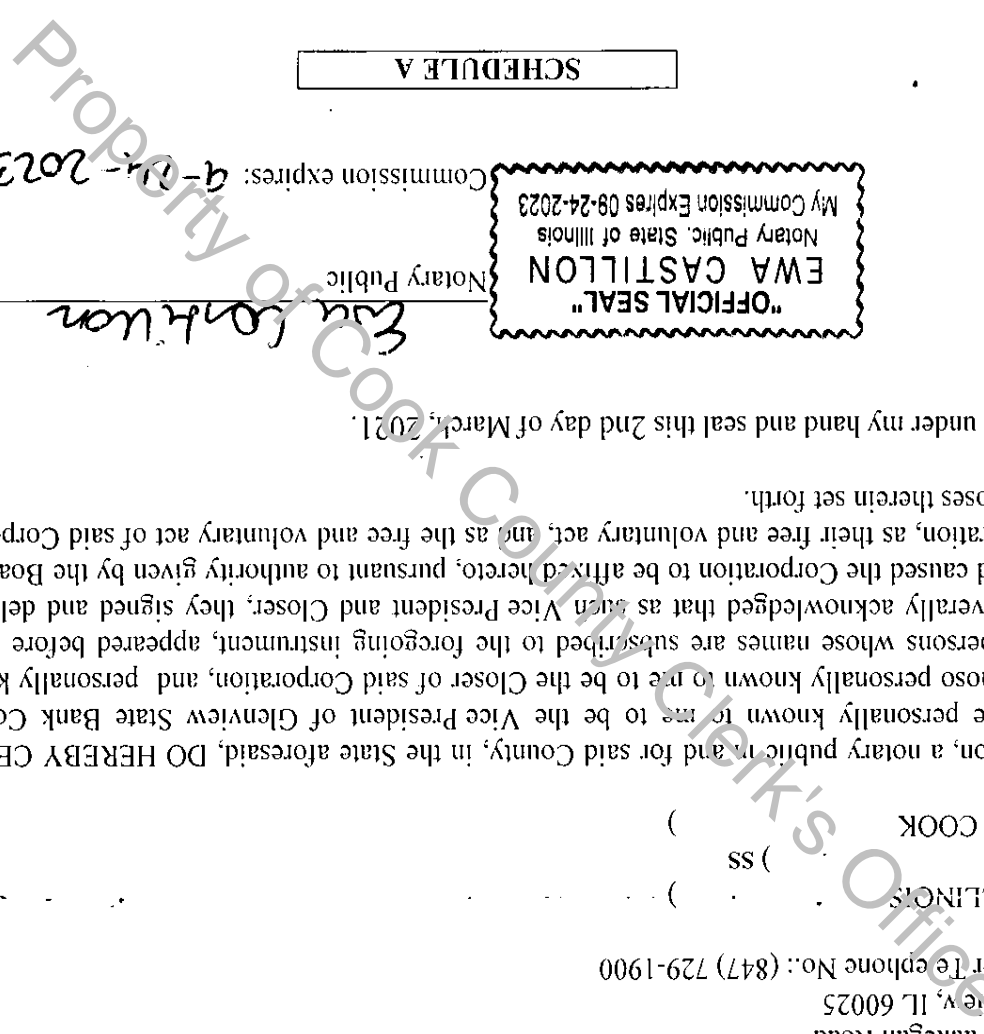 aukegan Road
iew, IL 60025
er Telephone No.: (847) 729-1900
LLINOIS )
) SS
COOK )
on, a notary public in and for said County, in the State aforesaid, DO HEREBY CE
e personally known to me to be the Vice President of Glenview State Bank Co
noso personally known to me to be the Closer of said Corporation, and personally k
persons whose names are subscribed to the foregoing instrument, appeared before
verally acknowledged that as such Vice President and Closer, they signed and del
d caused the Corporation to be affixed hereto, pursuant to authority given by the Boa
ration, as their free and voluntary act, and as the free and voluntary act of said Corp
oses therein set forth.
under my hand and seal this 2nd day of March, 2021.
"OFFICIAL SEAL"
EWA CASTILLON
Notary Public, State of Illinois
My Commission Expires 09-24-2023
Ewa Castillon
Notary Public
Commission expires: 9-24-2023
SCHEDULE A
Property of Cook County Clerk's Office